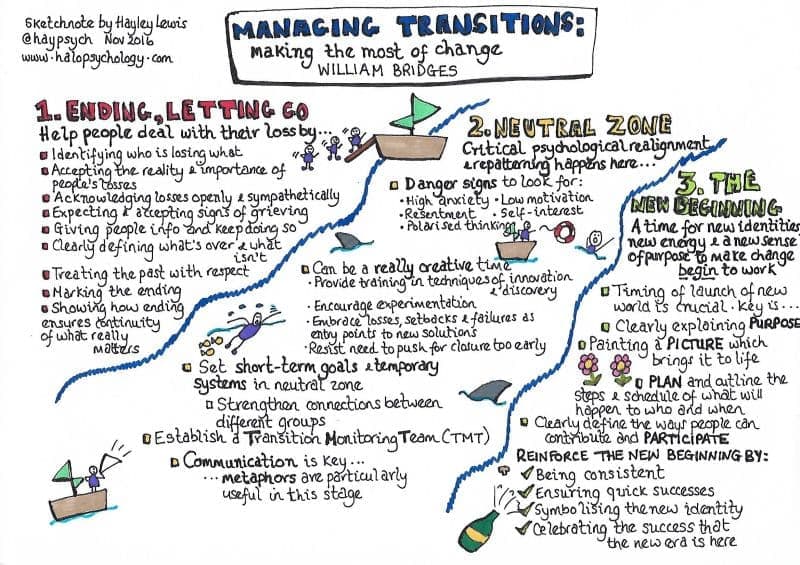 Sketchnote by Hayley Lewis
@haypsych Nov 2016
www.halopsychology.com
MANAGING TRANSITIONS:
making the most of change
WILLIAM BRIDGES
1. ENDING, LETTING GO
Help people deal with their loss by...
Identifying who is losing what
Accepting the reality & importance of
people's losses
Acknowledging losses openly & sympathetically
Expecting & accepting signs of grieving
Giving people info and keep doing so
Clearly defining what's over & what
isn't
Treating the past with respect
Marking the ending
Showing how ending
ensures continuity
of what really
matters
2. NEUTRAL ZONE
Critical psychological realignment
& repatterning happens here...
Danger signs to look for:
• High anxiety • Low motivation
• Resentment • Self-interest
• Polarised thinking
Can be a really creative time
• Provide training in techniques of innovation
& discovery
• Encourage experimentation
• Embrace losses, setbacks & failures as
entry points to new solutions
• Resist need to push for closure too early
Set short-term goals & temporary
systems in neutral zone
Strengthen connections between
different groups
Establish a Transition Monitoring Team (TMT)
Communication is key...
...metaphors are particularly
useful in this stage
3. THE
NEW BEGINNING
A time for new identities,
new energy & a new sense
of purpose to make change
begin to work
Timing of launch of new
world is crucial. Key is...
Clearly explaining PURPOSE
Painting a PICTURE which
brings it to life
PLAN and outline the
steps & schedule of what will
happen to who and when
Clearly define the ways people can
contribute and PARTICIPATE
REINFORCE THE NEW BEGINNING BY:
✓ Being consistent
✓ Ensuring quick successes
✓ Symbolising the new identity
✓ Celebrating the success that
the new era is here